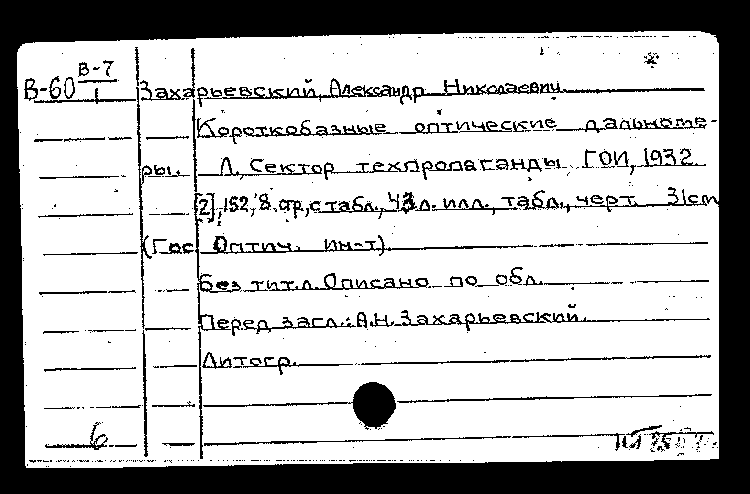 В-60 В-7
1
Захарьевский, Александр Николаевич
Короткобазные оптические дальноме-
ры. Л., Сектор техпропаганды ГОИ, 1932
[2], 152, 8 стр, с табл., 43 л. илл., табл., черт. 31 cm
(Гос Оптич. ин-т).
Без тит. л. Описано по обл.
Перед загл.: А.Н. Захарьевский.
Литогр.
6